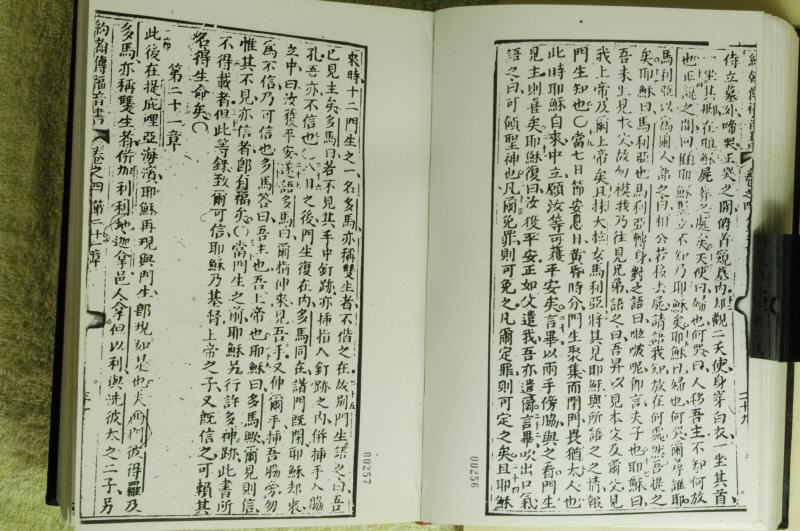 侍立墓外啼哭正哭之間俯首窺墓內却觀二天使身穿白衣一坐其首
一坐其脚在耶穌屍葬之處矣天使曰婦也何哭曰人移吾主不知何放
也正說之間回顧耶穌竪立不知乃耶穌矣耶穌曰婦也何哭爾尋誰耶
馬利亞以爲園人語之曰相公若移去屍請語我知放在何處然吾提之
矣耶穌曰馬利亞也馬利亞轉身對之語曰啦唬呢即言夫子也耶穌曰
吾未上見父故勿摸我乃往見兄弟語之曰吾昇以見本父及爾父見
我上帝及爾上帝矣且抹大拉女馬利亞將其見耶穌與所語之之情報
門生知也〇當七日節安息日黃昏時分門生聚集而閉門畏猶太人也
此時耶穌自來中立願汝等可獲平安矣言畢以兩手傍脇與之看門生
見主則喜矣耶穌復曰汝獲平安正如父遣我吾亦遣爾言畢吹出口氣
語之曰可領聖神也凡爾免罪則可免之凡爾定罪則可定之矣且耶穌
00256
來時十二門生之一名多馬亦稱雙生者不偕之在故別門生語之曰吾
已見主矣多馬曰若不見其手中釘跡亦揷指入釘跡之內併揷手入脇
孔吾亦不信也〇八日之後門生復在內多馬同在諸門既閉耶穌却來
之中曰汝獲平安遂語多馬曰爾指伸來見吾手又伸爾手揷吾脇旁勿
爲不信乃可信也多馬答曰吾主也吾上帝也耶穌曰多馬歟爾見則信
惟其不見亦信者卽有福矣〇當門生之前耶穌另行許多神跡此書所
不得載者但此等錄致爾可信耶穌乃基督上帝之子又旣信之可賴其
名得生命矣〇
第二十一章
此後在提庇哩亞海濱耶穌再現與門生卽現如是也夫西門彼得羅及
多馬亦稱雙生者併加利利地迦拿邑人拿但以利與洗彼太之二子另
約翰傳福音書 卷之四 第二十一章
00257